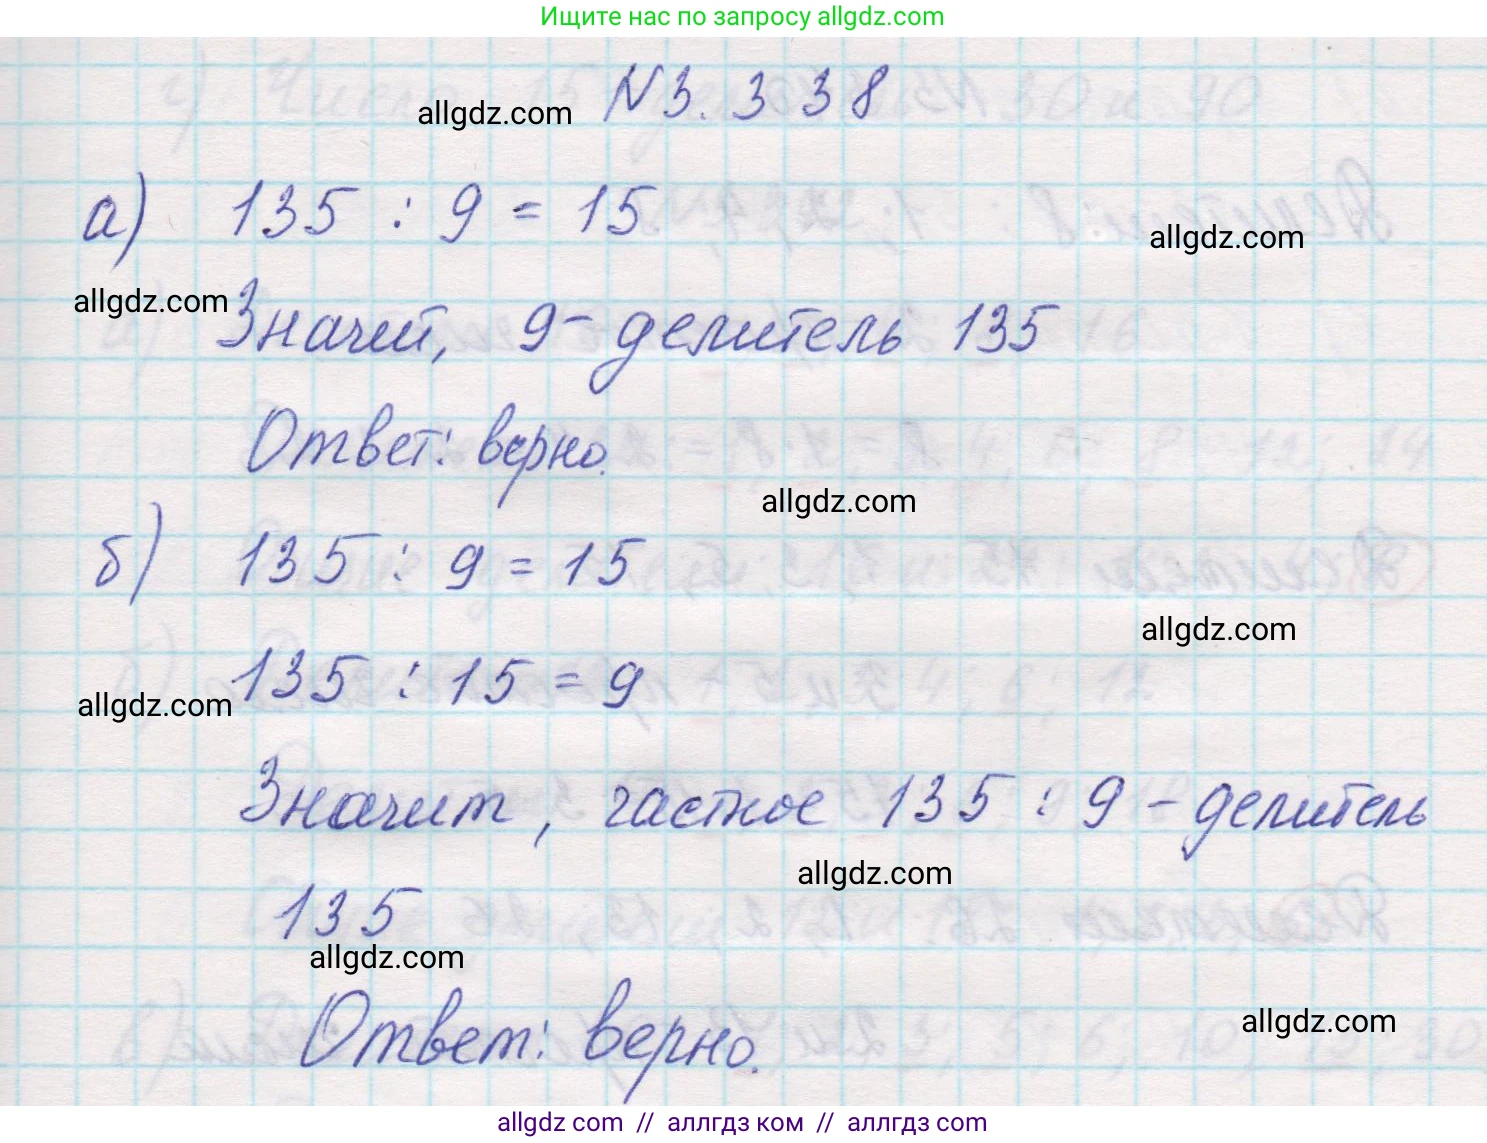 Ищите нас по запросу allgdz.com
allgdz.com
N3.338
а) 135 : 9 = 15
allgdz.com
allgdz.com
Значит, 9 - делитель 135
Ответ: верно.
allgdz.com
б) 135 : 9 = 15
allgdz.com
135 : 15 = 9
allgdz.com
Значит, частное 135 : 9 - делитель
allgdz.com
135
allgdz.com
allgdz.com
Ответ: верно.
allgdz.com // аллгдз ком // аллгдз com